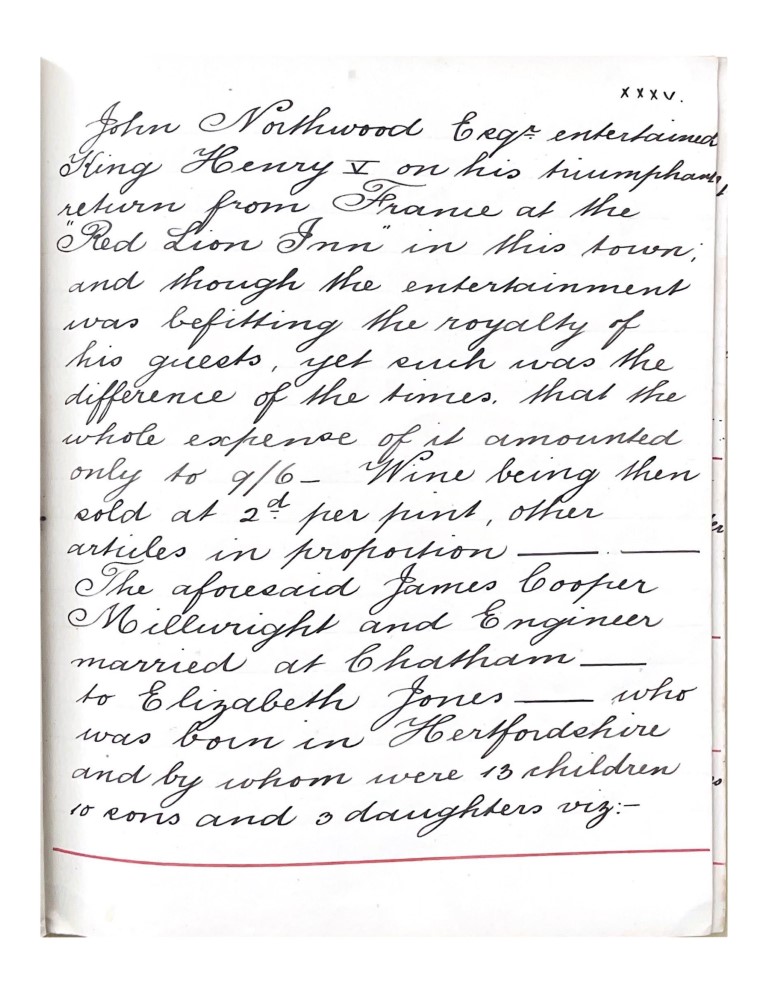 xxxv.
John Northwood Esqr. entertained
King Henry V on his triumphant
return from France at the
"Red Lion Inn" in this town;
and though the entertainment
was befitting the royalty of
his guests, yet such was the
difference of the times. that the
whole expense of it amounted
only to 9/6 – Wine being then
sold at 2d per pint, other
articles in proportion — —
The aforesaid James Cooper
Millwright and Engineer
married at Chatham —
to Elizabeth Jones — who
was born in Hertfordshire
and by whom were 13 children
10 sons and 3 daughters viz:-